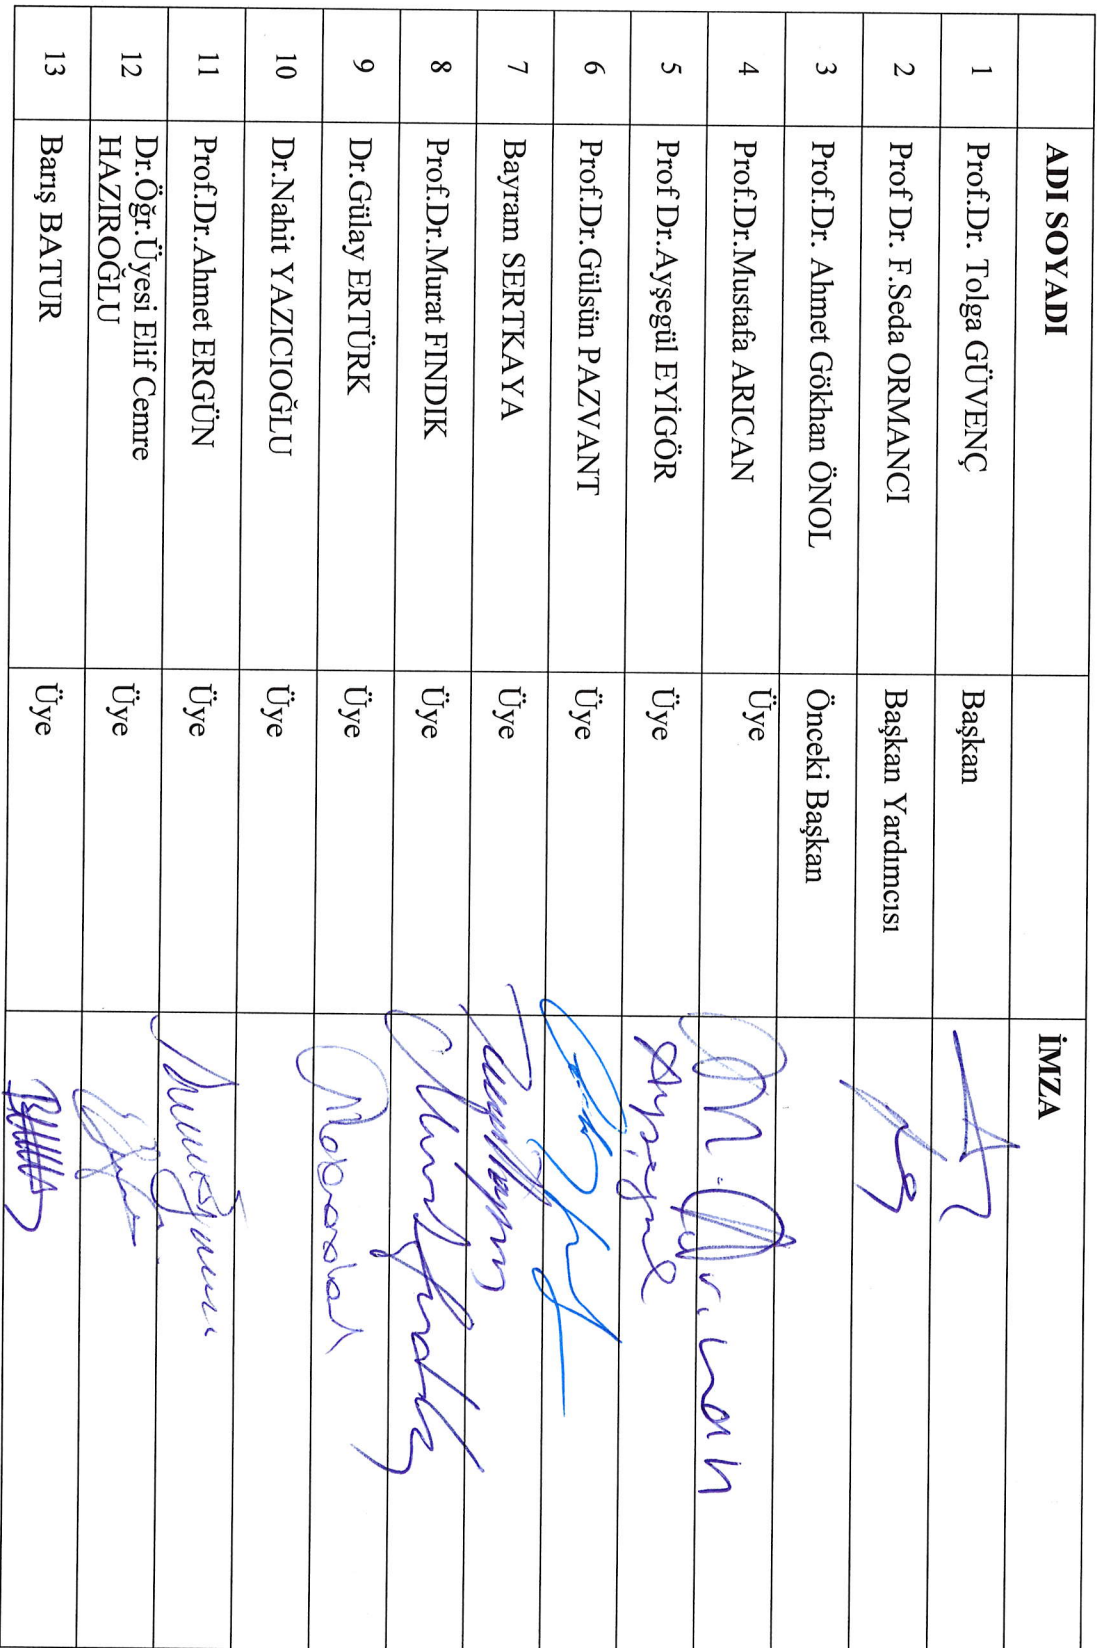 ADI SOYADI İMZA
1 Prof.Dr. Tolga GÜVENÇ Başkan
2 Prof Dr. F.Seda ORMANCI Başkan Yardımcısı
3 Prof.Dr. Ahmet Gökhan ÖNOL Önceki Başkan
4 Prof.Dr.Mustafa ARICAN Üye
5 Prof Dr.Ayşegül EYİGÖR Üye Ayşegül
6 Prof.Dr.Gülsün PAZVANT Üye
7 Bayram SERTKAYA Üye
8 Prof.Dr.Murat FINDIK Üye
9 Dr.Gülay ERTÜRK Üye
10 Dr.Nahit YAZICIOĞLU Üye
11 Prof.Dr.Ahmet ERGÜN Üye
12 Dr.Öğr.Üyesi Elif Cemre Üye
HAZIROĞLU
13 Barış BATUR Üye